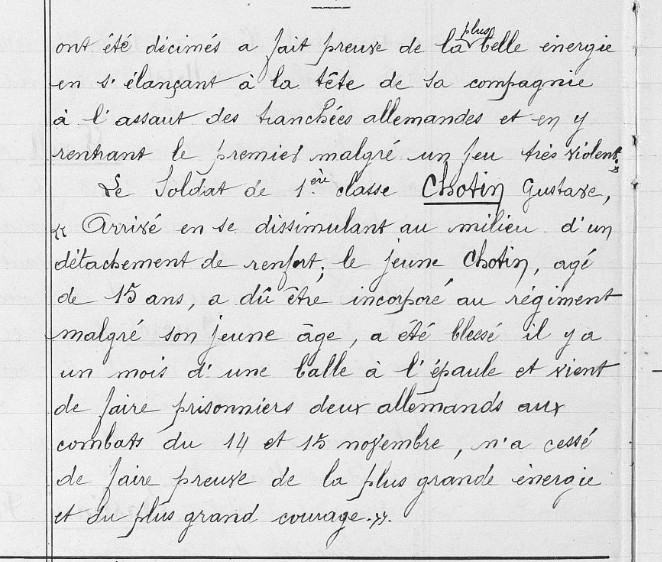 ont été décimés a fait preuve de la plus belle énergie
en s'élançant à la tête de sa compagnie
à l'assaut des tranchées allemandes et en y
rentrant le premier malgré un feu très violent."
Le Soldat de 1.ère classe Chotin Gustave,
" Arrivé en se dissimulant au milieu d'un
détachement de renfort; le jeune Chotin, agé
de 15 ans, a dû être incorporé au régiment
malgré son jeune âge, a été blessé il y a
un mois d'une balle à l'épaule et vient
de faire prisonniers deux allemands aux
combats du 14 et 15 novembre, n'a cessé
de faire preuve de la plus grande énergie
et du plus grand courage.".